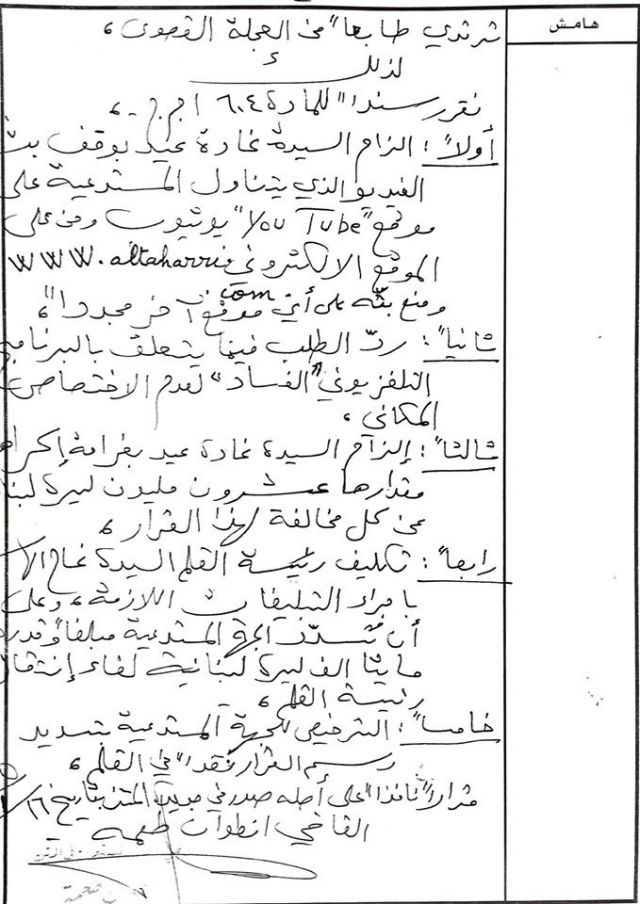 هامش
ترتدي طابعاً من العجلة القصوى،
لذلك
نقرر سنداً للمادة ٦٠٤ ا.م.م.،
أولاً: الزام السيدة غادة عيد بوقف بث
الفيديو الذي يتناول المستدعية على
موقع "You Tube" يوتيوب ومن على
الموقع الالكتروني www.altaharri
com
ومنع بثه على أي موقع آخر مجدداً،
ثانياً: ردّ الطلب فيما يتعلق بالبرنامج
التلفزيوني "الفساد" لعدم الاختصاص
المكاني،
ثالثاً: إلزام السيدة غادة عيد بغرامة إكراهية
مقدارها عشرون مليون ليرة لبنانية
عن كل مخالفة لهذا القرار،
رابعاً: تكليف رئيسة القلم السيدة
باجراء التبليغات اللازمة، وعلى
أن تسدّد الجهة المستدعية مبلغاً وقدره
مايتا الف ليرة لبنانية لقاء إنتقال
رئيسة القلم،
خامساً: الترخيص للجهة المستدعية بتسديد
رسم القرار نقداً في القلم،
قراراً نافذاً على أصله صدر في جديدة المتن بتاريخ ١٦/
القاضي انطوان طعمه